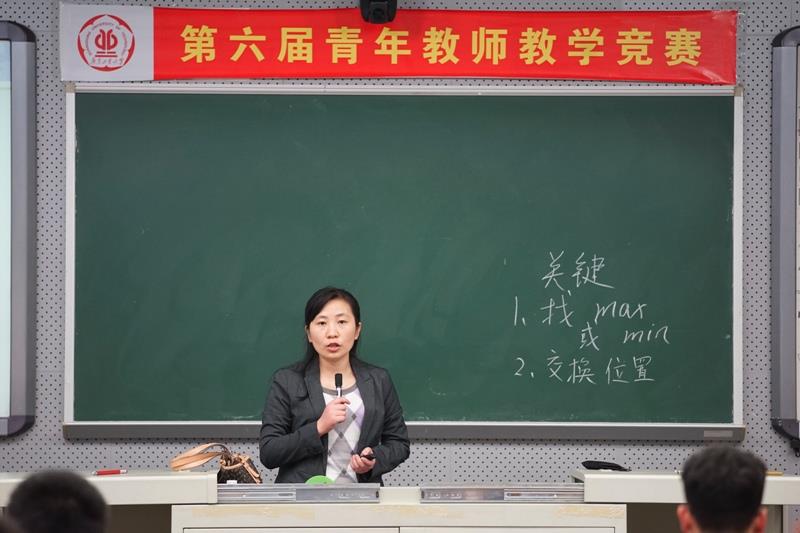 第六届青年教师教学竞赛
关键
1、找 max
或 min
2、交换位置